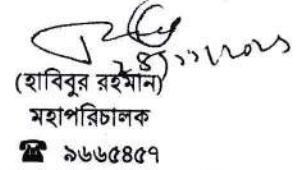 (হাবিবুর রহমান)
মহাপরিচালক
☎ ৯৬৬৫৪৫৭